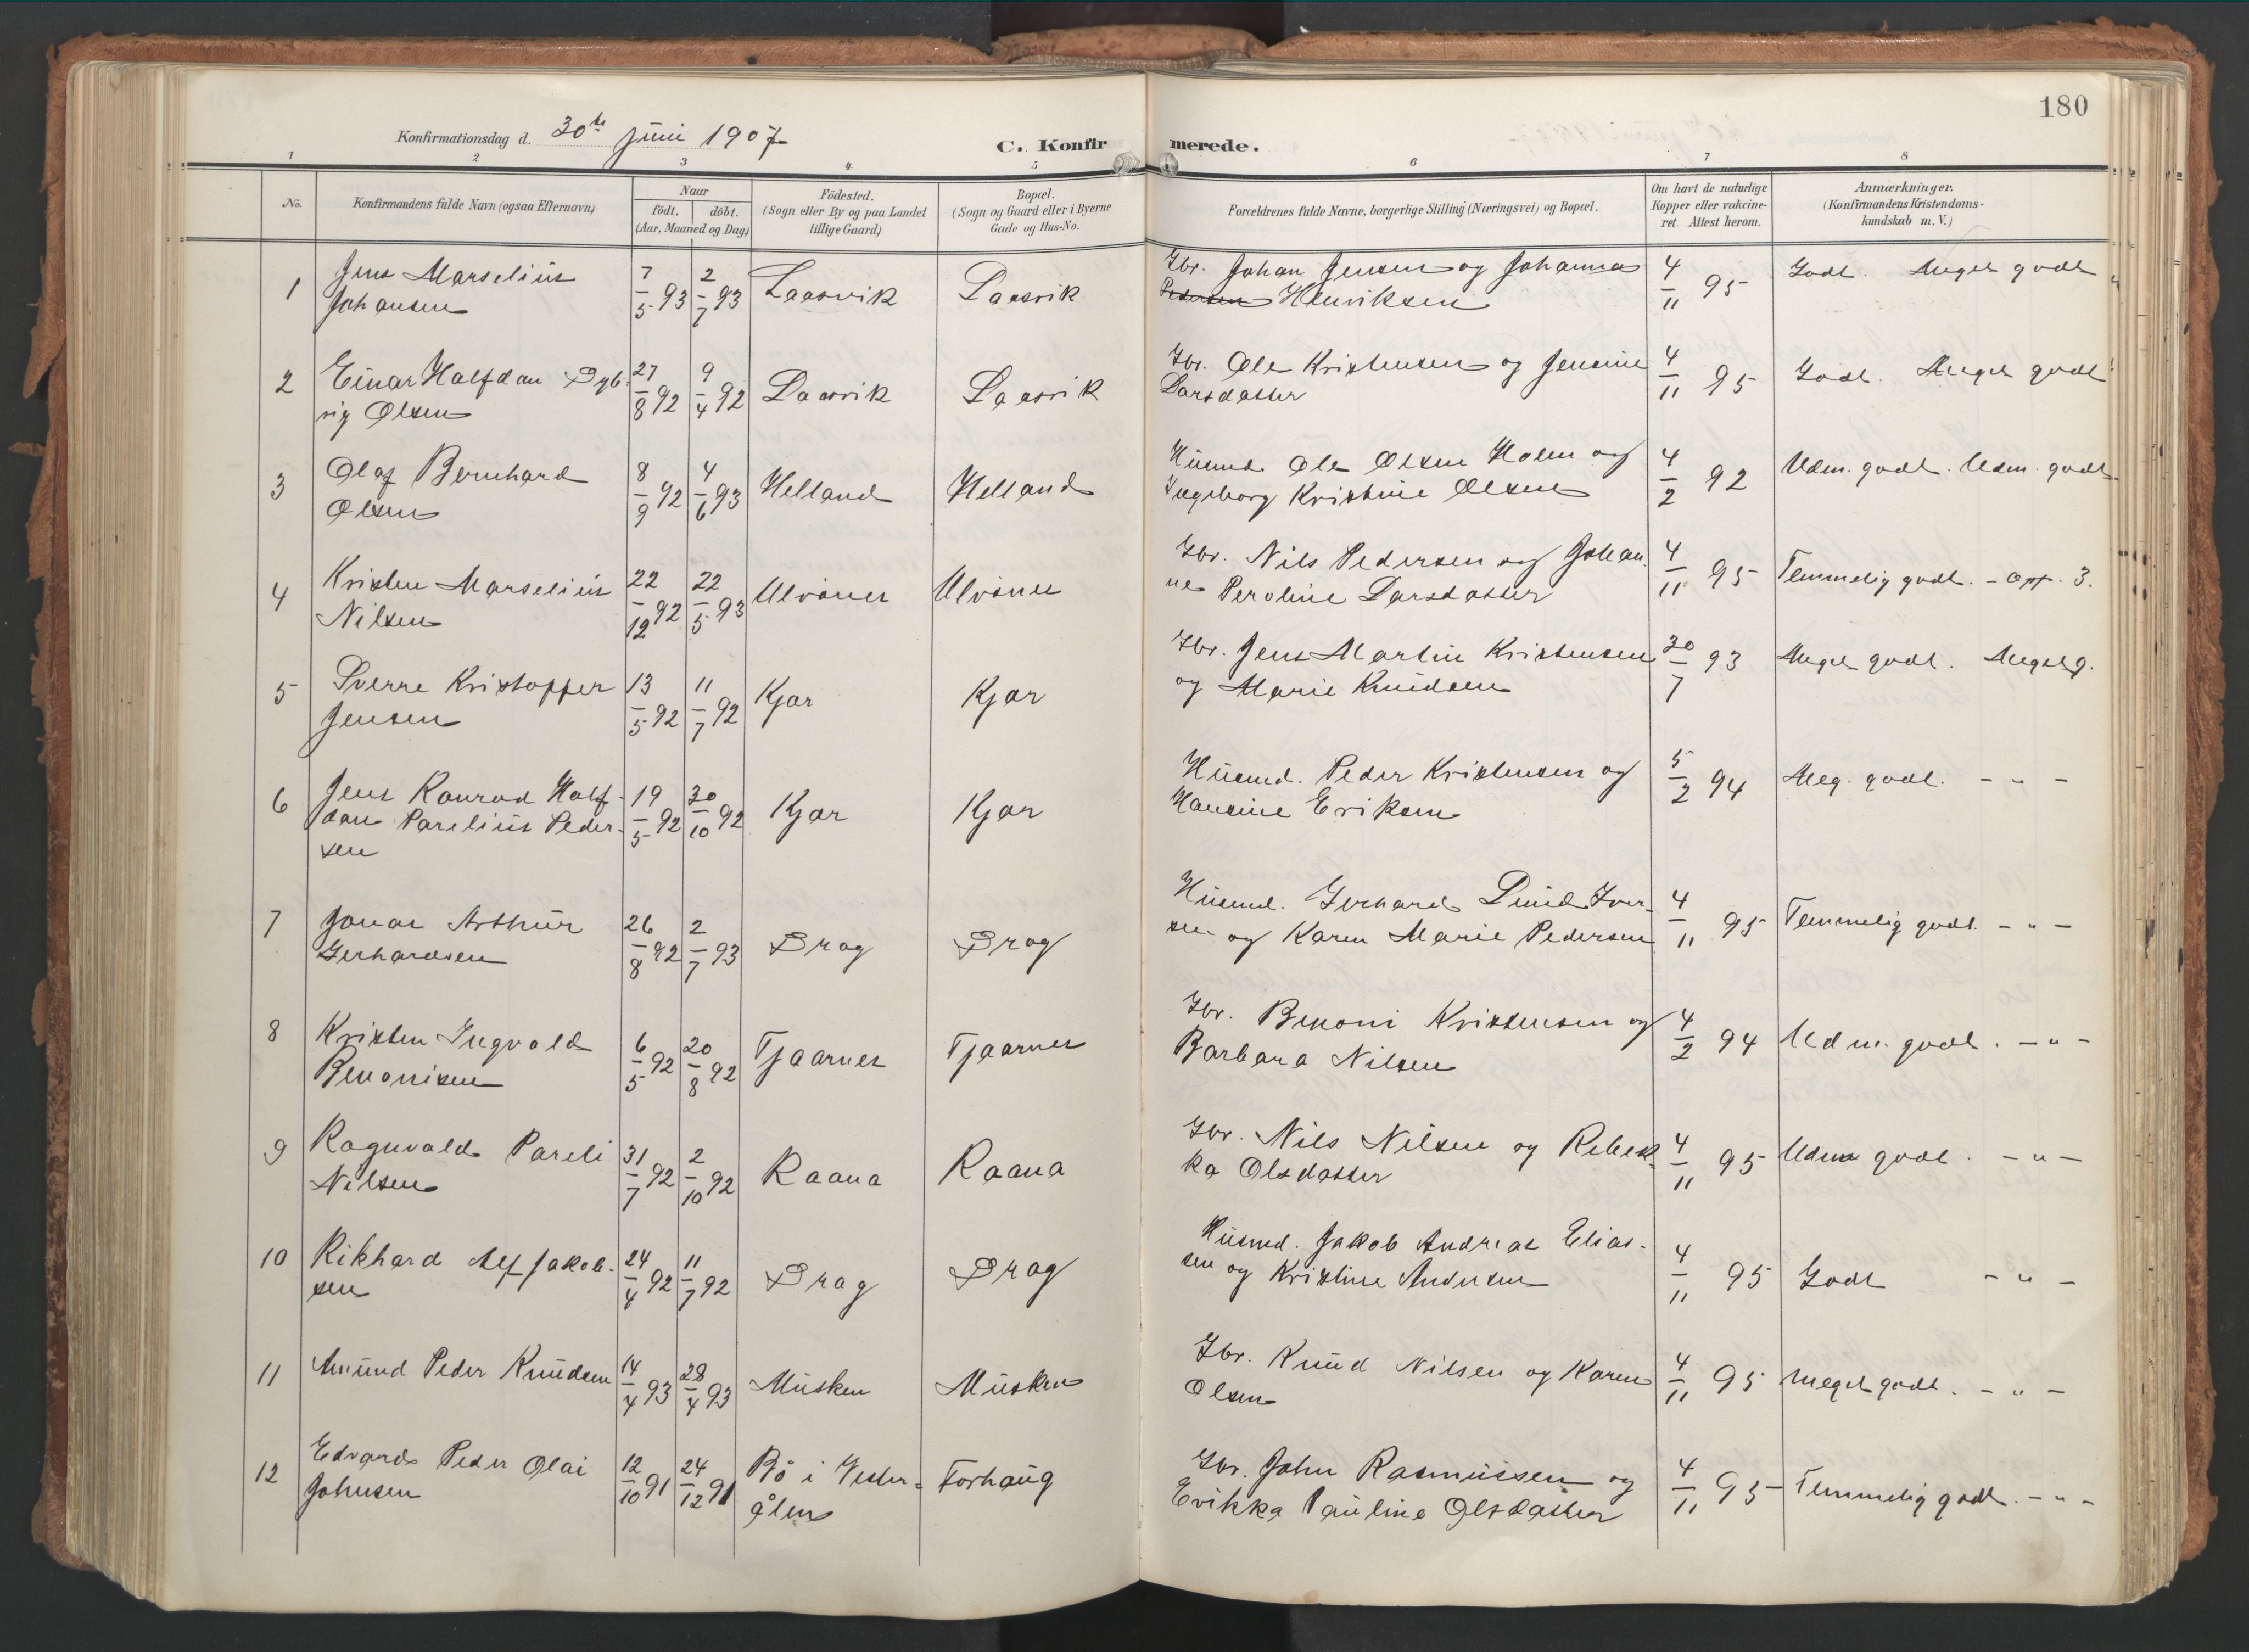 180
Konfirmationsdag d. 30te Juni 1907
C. Konfirmerede.
1 2 3 4 5 6 7 8
No.
Konfirmandens fulde Navn (ogsaa Efternavn)
Naar
födt. döbt.
(Aar, Maaned og Dag)
Födested.
(Sogn eller By og paa Landet
tillige Gaard)
Bopæl.
(Sogn og Gaard eller i Byerne
Gade og Hus-No.
Forældrenes fulde Navne, borgerlige Stilling (Næringsvei) og Bopæl.
Om havt de naturlige
Kopper eller vakcine-
ret. Attest herom.
Anmærkninger.
(Konfirmandens Kristendoms-
kundskab m. V.)
1 Jens Marselius 7/5 93 2/7 93 Laasvik Laasvik Gbr. Johan Jensen og Johanna 4/11 95 Godt. Meget godt
Johansen Pedersen Henriksen
2 Einar Halfdan Dyb- 27/8 92 9/4 92 Laasvik Laasvik Gbr. Ole Kristensen og Jensine 4/11 95 Godt. Meget godt
vig Olsen Larsdatter
3 Olaf Bernhard 8/9 92 4/6 93 Helland Helland Husmd. Ole Olsen Holm og 4/2 92 Udm. godt. Udm. godt
Olsen Ingeborg Kristine Olsen
4 Kristen Marselius 22/12 92 22/5 93 Ulvsnes Ulvsnes Gbr. Nils Pedersen og Johan- 4/11 95 Temmelig godt. - opf. 3.
Nilsen ne Peroline Larsdatter
5 Sverre Kristoffer 13/5 92 11/7 92 Kjær Kjær Gbr. Jens Martin Kristensen 30/7 93 Meget godt. Meget g.
Jensen og Marie Knudsen
6 Jens Konrad Half- 19/5 92 30/10 92 Kjær Kjær Husmd. Peder Kristensen og 5/2 94 Meg. godt. - " -
dan Parelius Peder- Hansine Eriksen
sen
7 Jonas Arthur 26/8 92 2/7 93 Drag Drag Husmd. Gerhard Lund Iver- 4/11 95 Temmelig godt. - " -
Gerhardsen sen og Karen Marie Pedersen
8 Kristen Ingvald 6/5 92 20/8 92 Tjaarnes Tjaarnes Gbr. Benoni Kristensen og 4/2 94 Udm. godt. - " -
Benonisen Barbara Nilsen
9 Ragnvald Pareli 31/7 92 2/10 92 Raana Raana Gbr. Nils Nilsen og Rebek- 4/11 95 Udm godt. - " -
Nilsen ka Olsdatter
10 Rikhard Alf Jakob- 24/4 92 11/7 92 Drag Drag Husmd. Jakob Andreas Elias- 4/11 95 Godt - " -
sen sen og Kristine Andersen
11 Amund Peder Knudsen 14/4 93 28/4 93 Musken Musken Gbr. Knud Nilsen og Karen 4/11 95 Meget godt. - " -
Olsen
12 Edvard Peder Olai 12/10 91 24/12 91 Bö i Vester- Forhaug Gbr. John Rasmussen og 4/11 95 Temmelig godt. - " -
Johnsen ålen Evikka Pauline Olsdatter